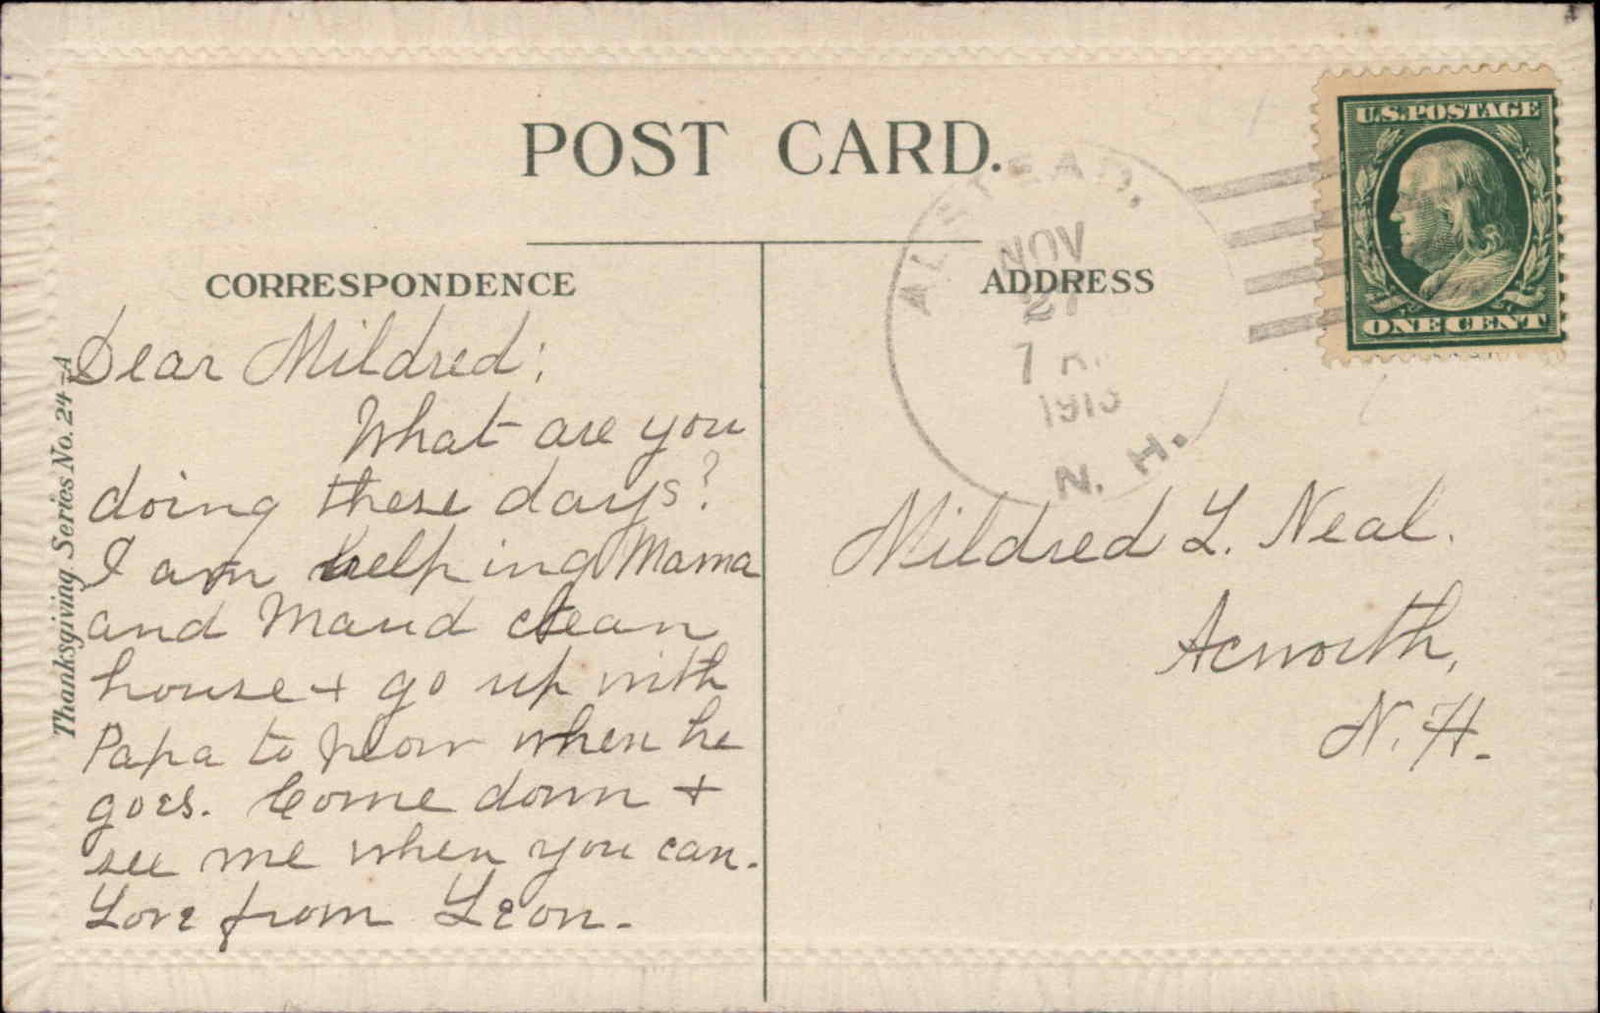 POST CARD.
U.S. POSTAGE
ONE CENT
ALSTEAD.
NOV
27
7
N. H.
CORRESPONDENCE
Dear Mildred;
What are you
doing these days?
I am helping Mama
and Maud clean
house + go up with
Papa to plow when he
goes. Come down +
see me when you can.
Love from Leon.
ADDRESS
Mildred L. Neal.
Acworth,
N. H.
Thanksgiving Series No. 24-A